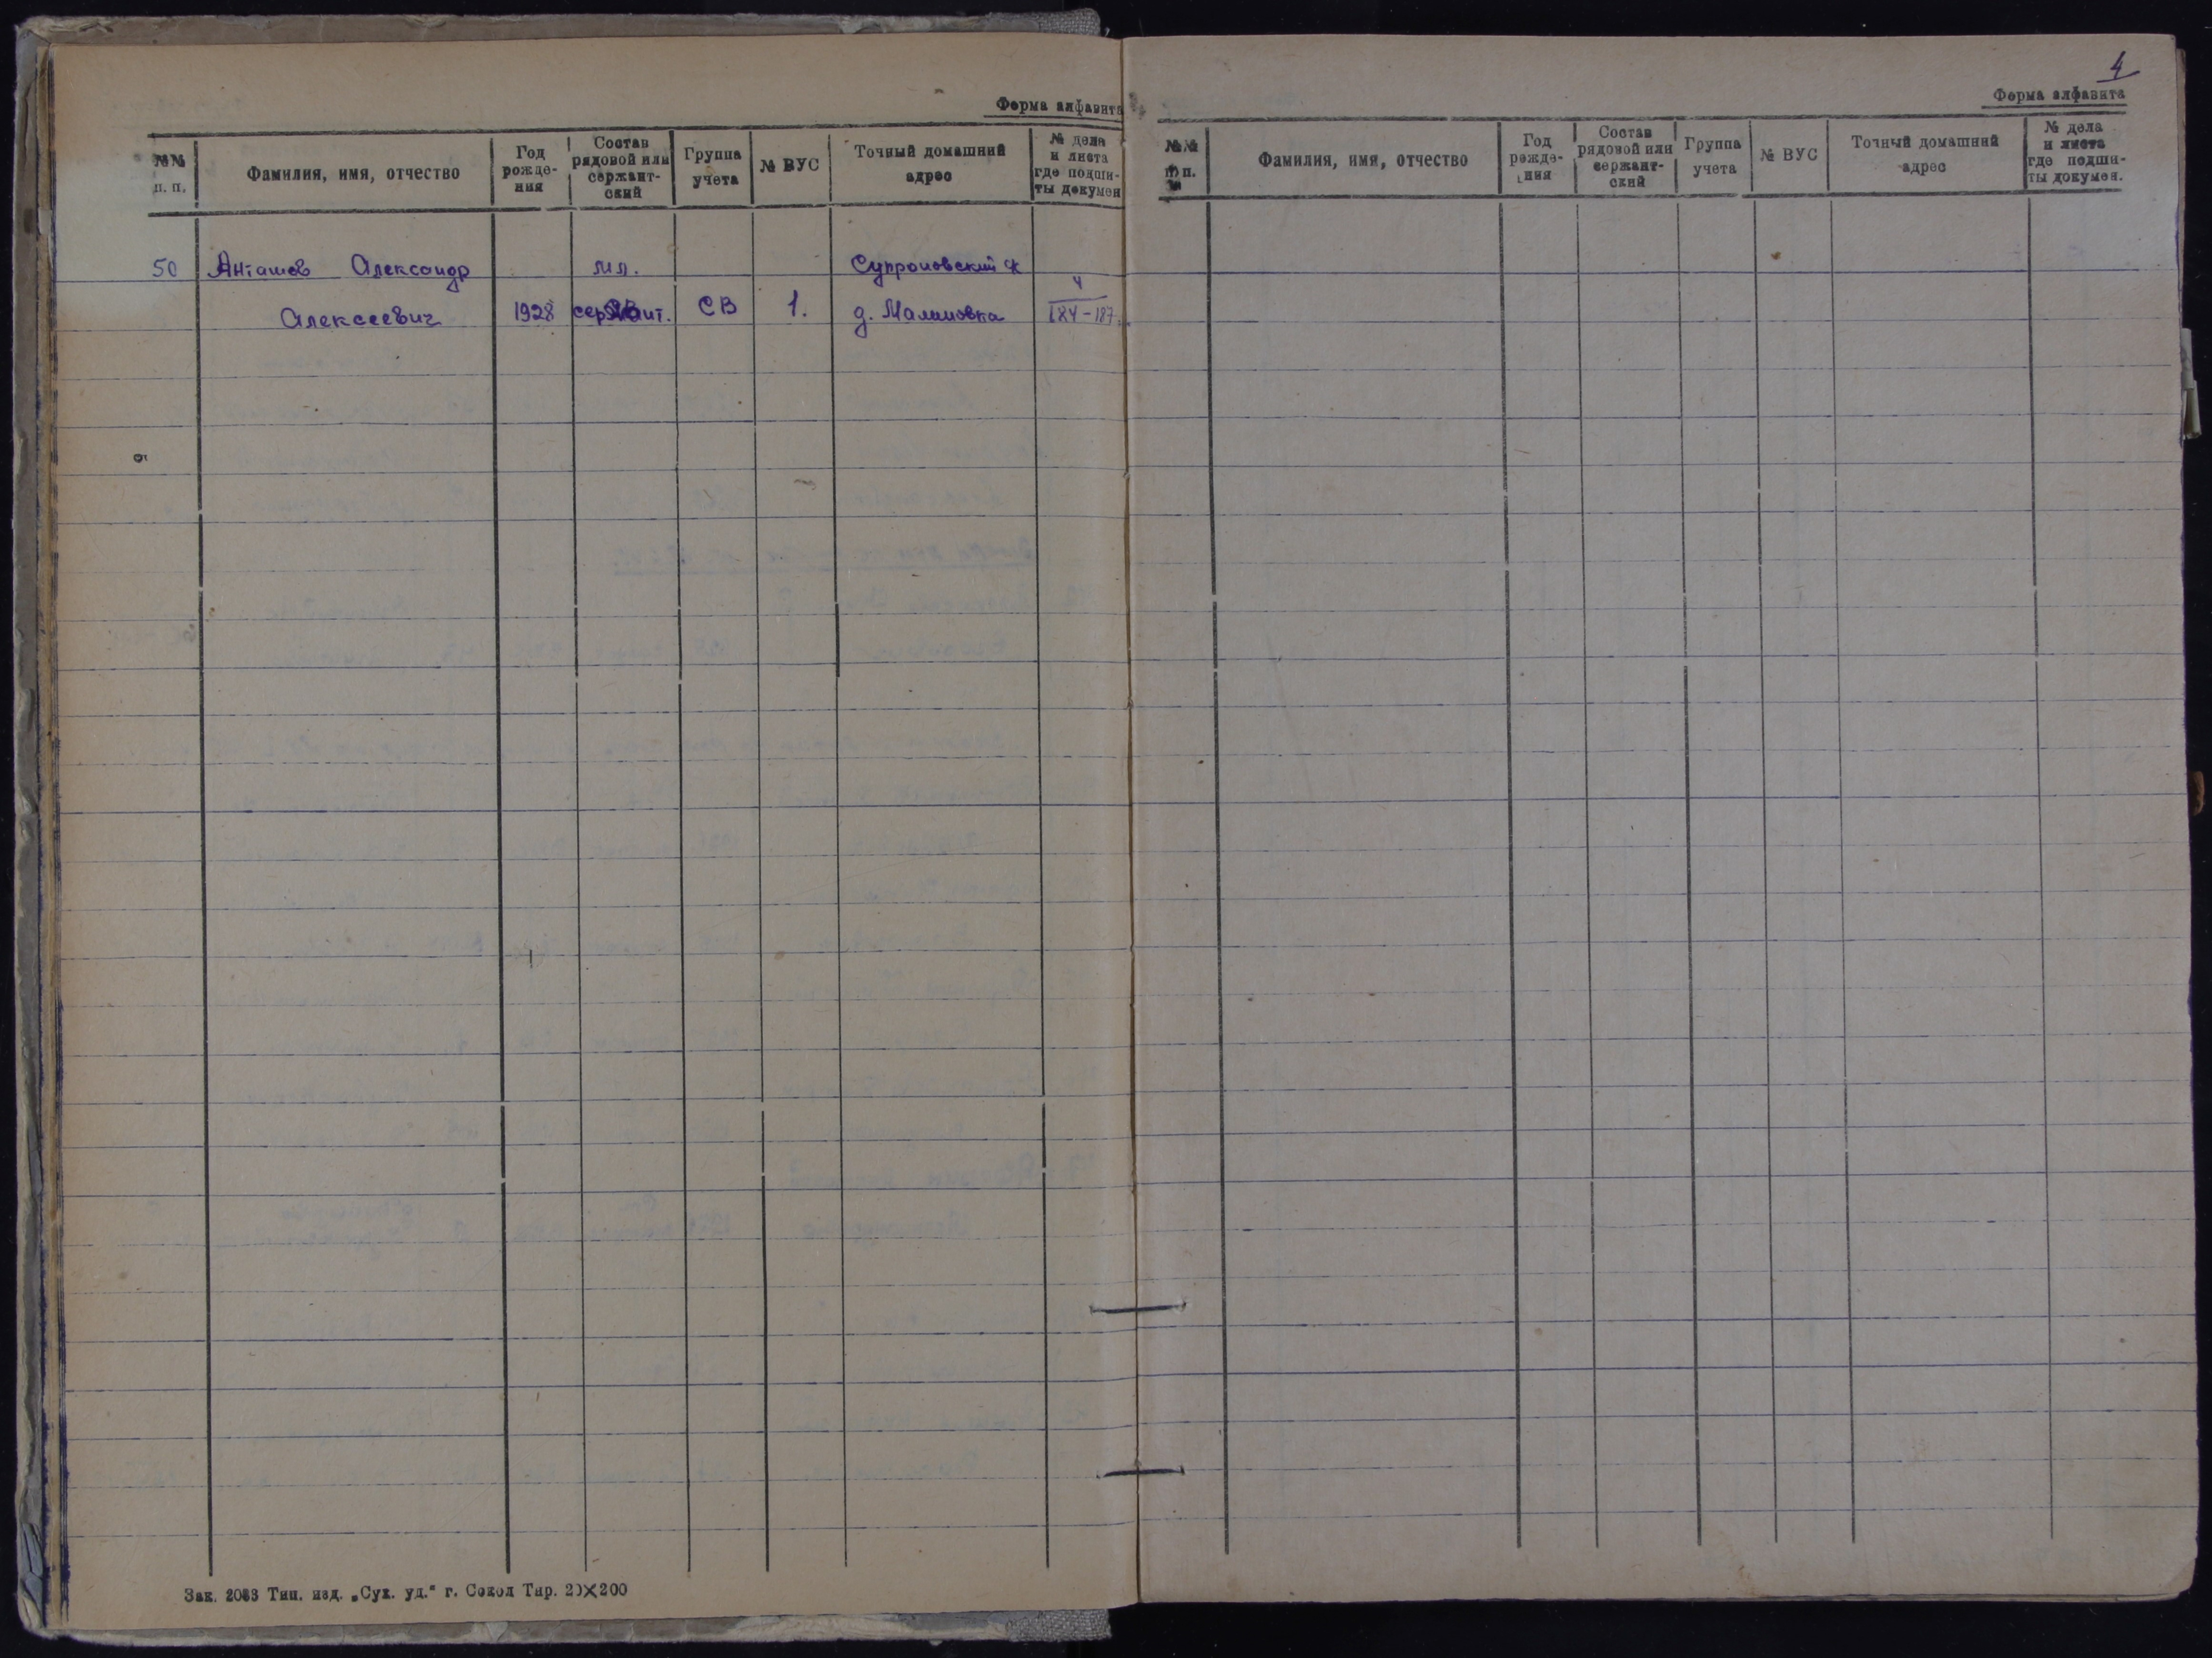 Форма алфавита
№№ п. п. Фамилия, имя, отчество Год рождения Состав рядовой или сержантский Группа учета № ВУС Точный домашний адрес № дела и листа где подшиты докумен
50 Анташов Александр мл. 4
Алексеевич 1928 сержант. СВ 1. д. Малиновка 184-187.
Зак. 2083 Тип. изд. „Сух. уд.“ г. Сокол Тир. 20×200
4
Форма алфавита
№№ п. п. Фамилия, имя, отчество Год рожде-ния Состав рядовой или сержант-ский Группа учета № ВУС Точный домашний адрес № дела и листа где подши-ты докумен.